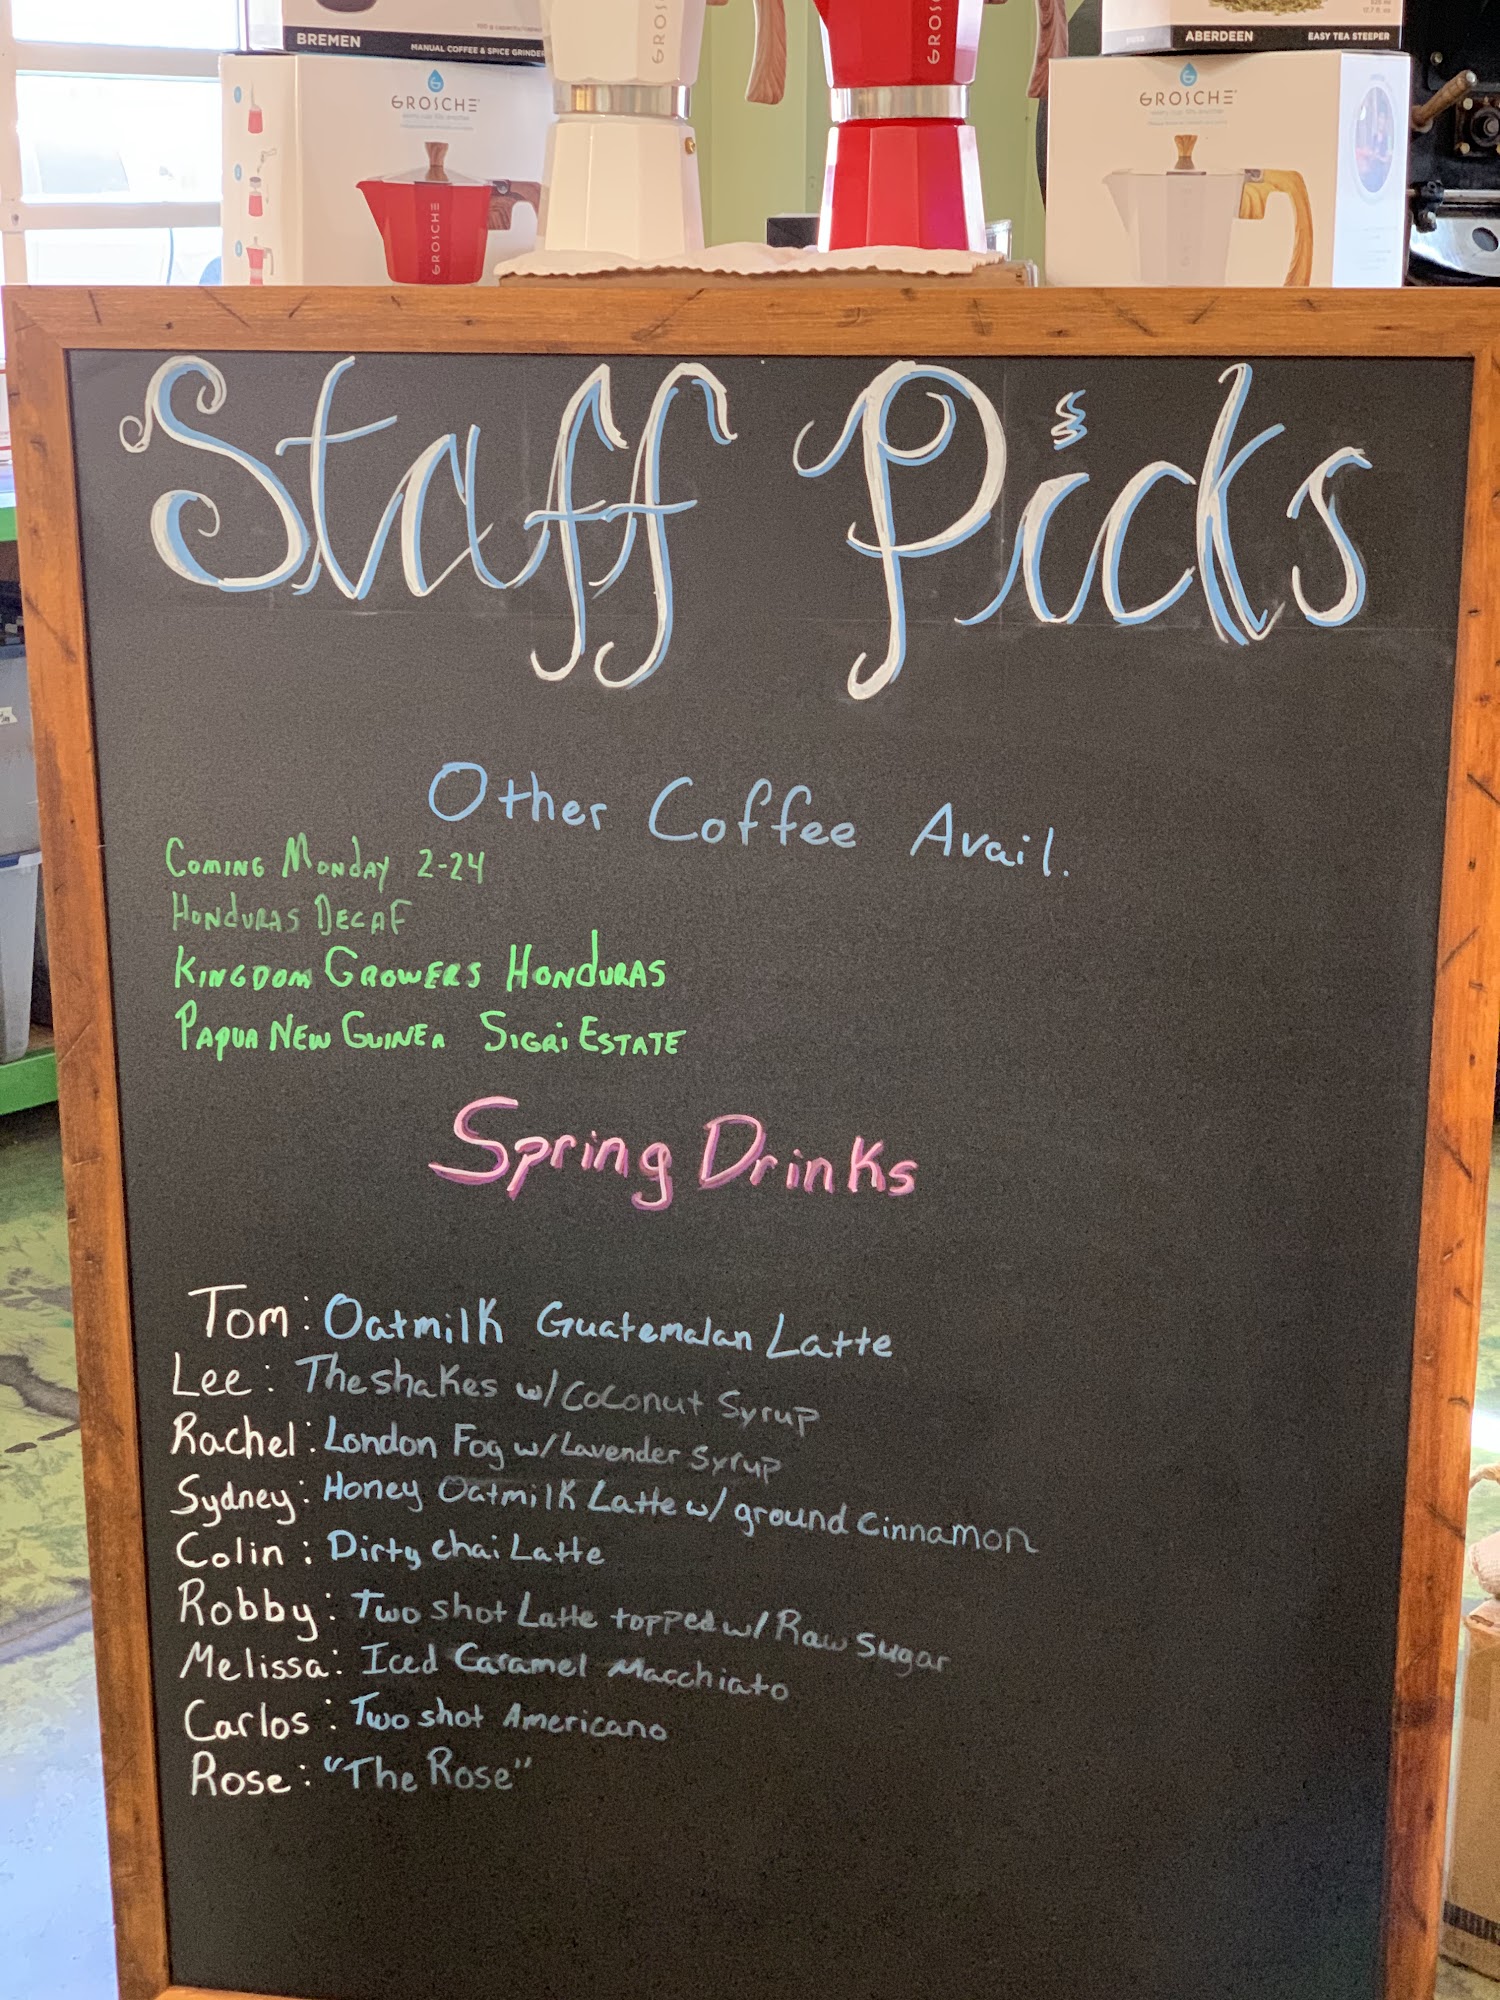 BREMEN
MANUAL COFFEE & SPICE GRINDER
ABERDEEN
EASY TEA STEEPER
GROSCHE
GROSCHE
GROSCHE
GROSCHE
GROSCHE
Staff Picks
Other Coffee Avail.
Coming Monday 2-24
Honduras Decaf
Kingdom Growers Honduras
Papua New Guinea Sigri Estate
Spring Drinks
Tom: Oatmilk Guatemalan Latte
Lee: The shakes w/ Coconut Syrup
Rachel: London Fog w/ Lavender Syrup
Sydney: Honey Oatmilk Latte w/ ground cinnamon
Colin: Dirty chai Latte
Robby: Two shot Latte topped w/ Raw sugar
Melissa: Iced Caramel Macchiato
Carlos: Two shot Americano
Rose: "The Rose"